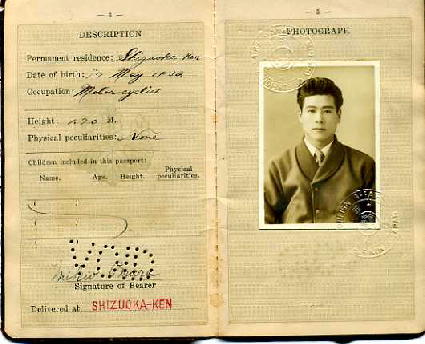 — 4 —
DESCRIPTION
Permanent residence: Shizuoka Ken
Date of birth: May
Occupation Motor cyclist
Height M.
Physical peculiarities: None
Children included in this passport:
Name. Age. Height. Physical peculiarities.
VOID
Signature of Bearer
Delivered at SHIZUOKA-KEN
— 5 —
PHOTOGRAPH